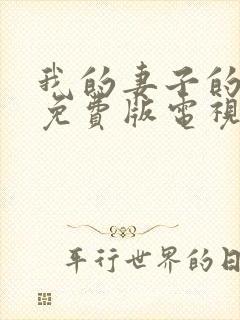 我的妻子的
免費版電視
平行世界的日